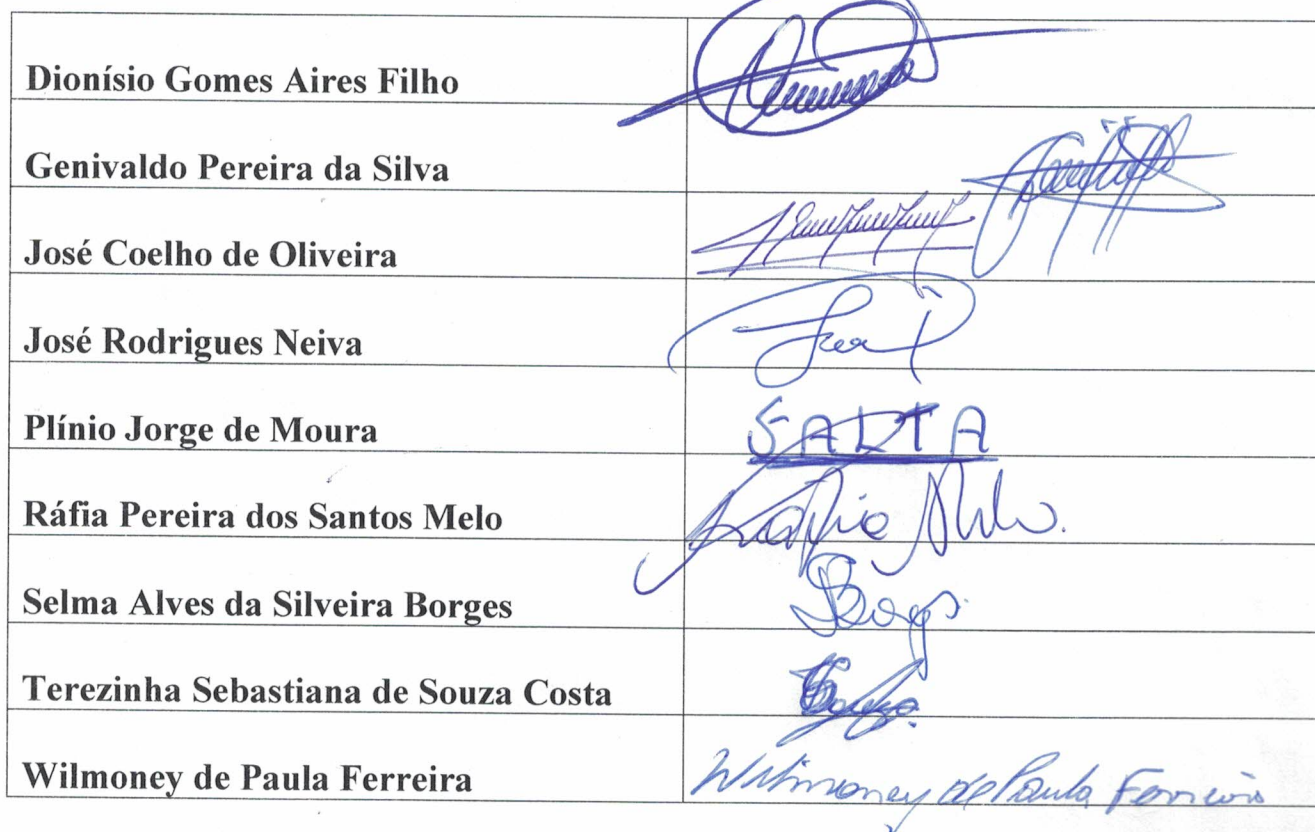 Dionísio Gomes Aires Filho
Genivaldo Pereira da Silva
José Coelho de Oliveira
José Rodrigues Neiva
Plínio Jorge de Moura FALTA
Ráfia Pereira dos Santos Melo Ráfia Melo.
Selma Alves da Silveira Borges SBorges
Terezinha Sebastiana de Souza Costa
Wilmoney de Paula Ferreira Wilmoney de Paula Ferreira